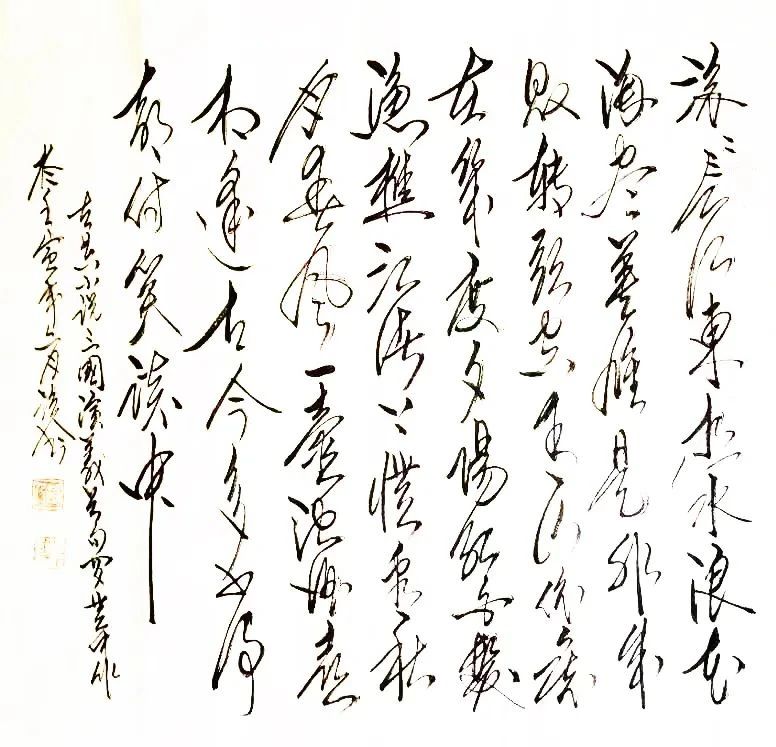 滚滚长江東逝水浪花
淘尽英雄是非成
败轉头空青山依旧
在幾度夕陽红白髮
渔樵江渚上惯看秋
月春風一壶浊酒喜
相逢古今多少事
都付笑谈中
古典小说三國演義
壬寅年六月